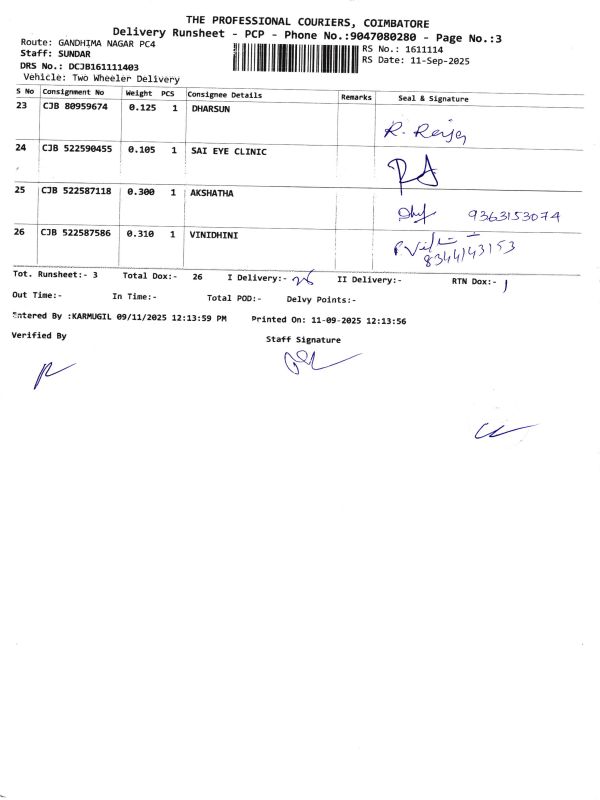 THE PROFESSIONAL COURIERS, COIMBATORE
Delivery Runsheet - PCP - Phone No.:9047080280 - Page No.:3
Route: GANDHIMA NAGAR PC4 RS No.: 1611114
Staff: SUNDAR RS Date: 11-Sep-2025
DRS No.: DCJB161111403
Vehicle: Two Wheeler Delivery
S No Consignment No Weight PCS Consignee Details Remarks Seal & Signature
23 CJB 80959674 0.125 1 DHARSUN
24 CJB 522590455 0.105 1 SAI EYE CLINIC
25 CJB 522587118 0.300 1 AKSHATHA 9363153074
26 CJB 522587586 0.310 1 VINIDHINI
8344143153
Tot. Runsheet:- 3 Total Dox:- 26 I Delivery:- II Delivery:- RTN Dox:- 1
Out Time:- In Time:- Total POD:- Delvy Points:-
Entered By :KARMUGIL 09/11/2025 12:13:59 PM Printed On: 11-09-2025 12:13:56
Verified By Staff Signature